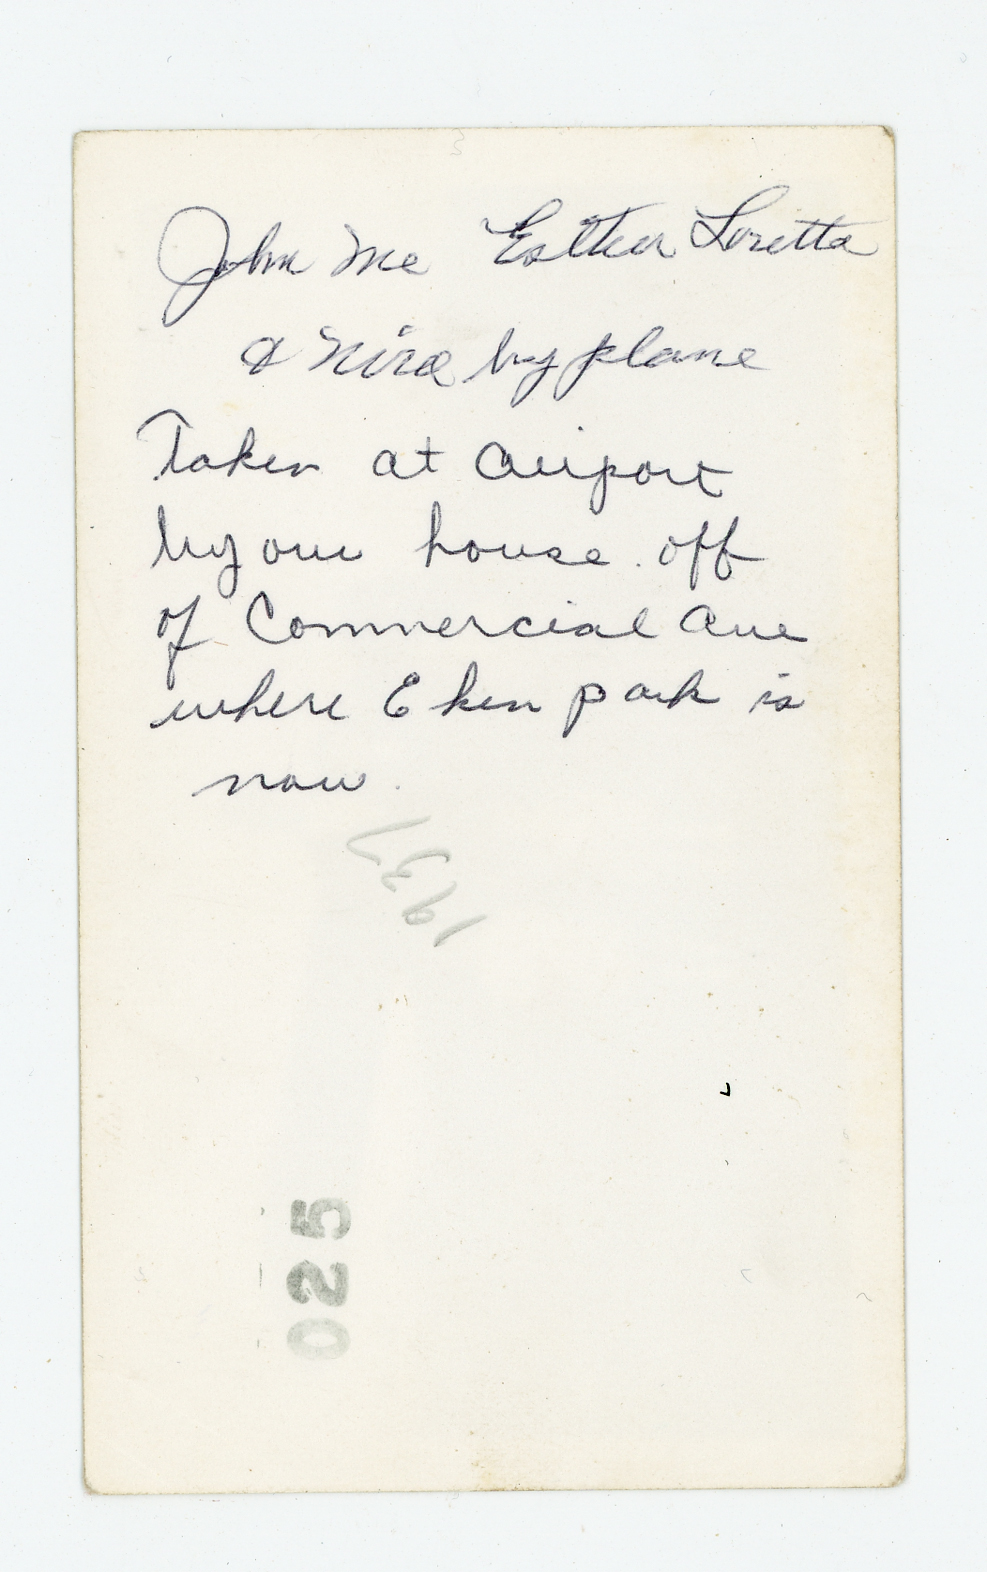 John Me Esther Loretta
& Nina by plane
Taken at airport
by our house. off
of Commercial Ave
where Eken park is
now.
1937
025